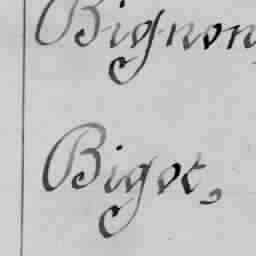 Bignon,
Bigot,